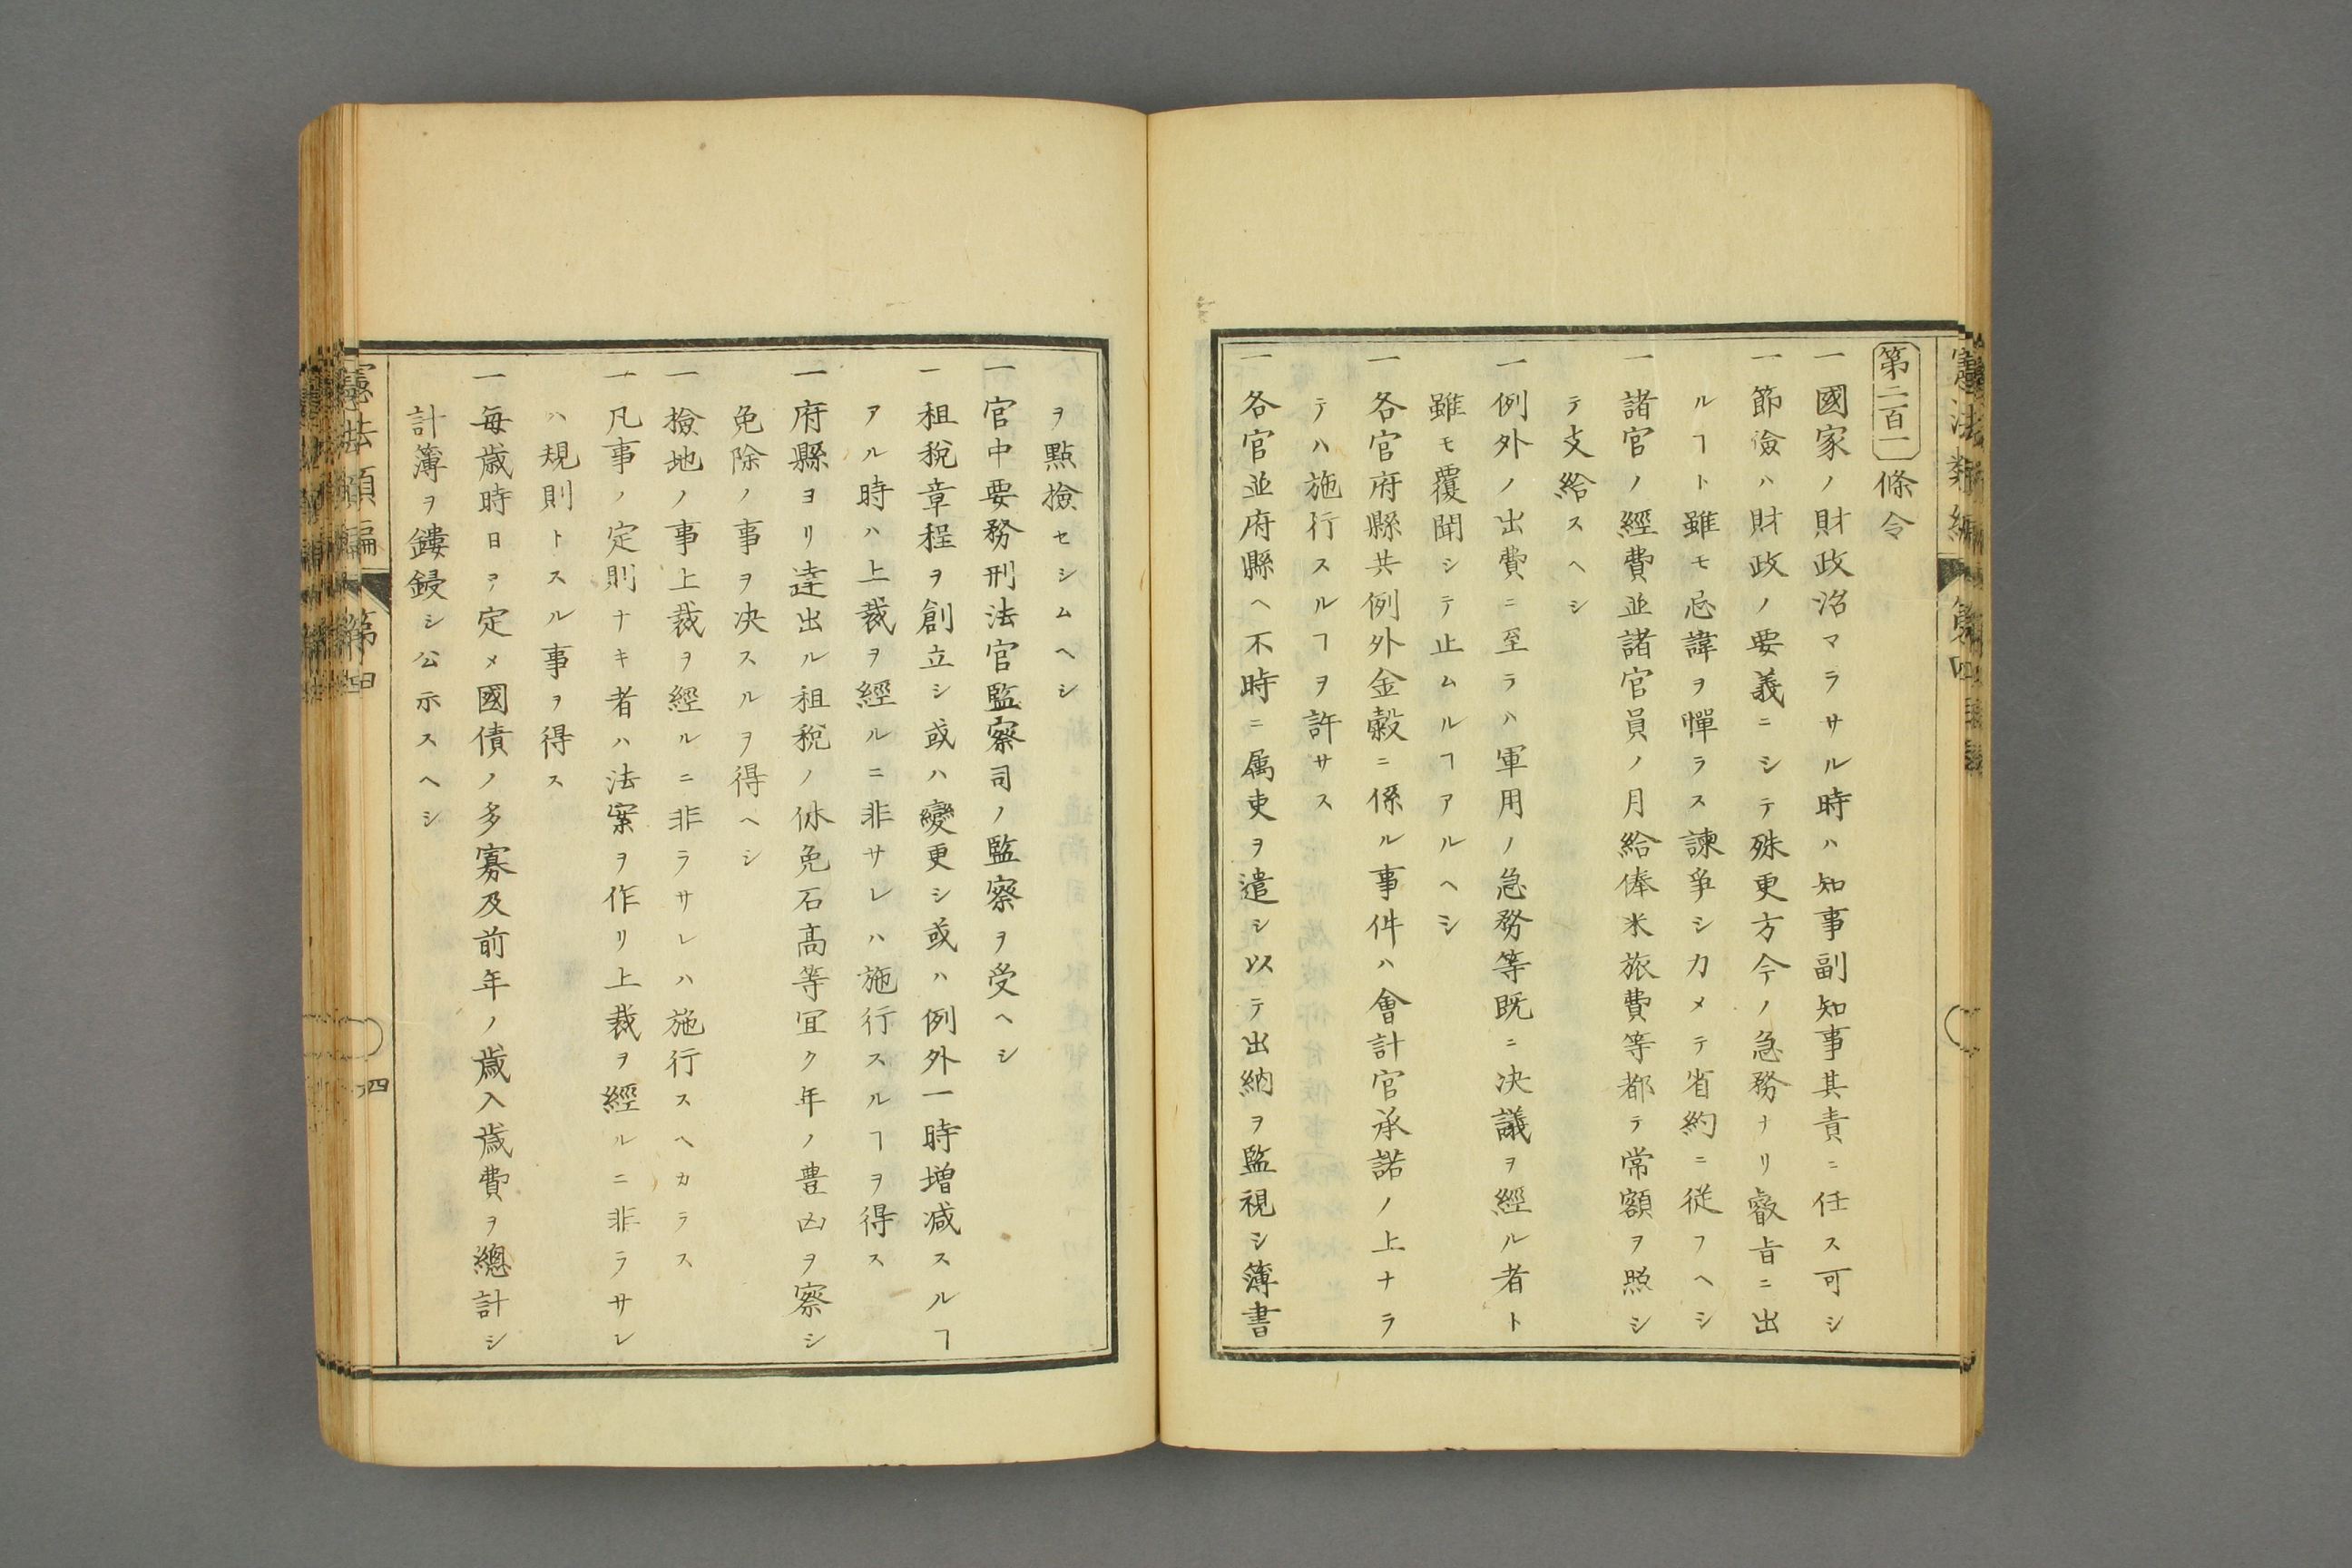 憲法類編 第四
第二百一 條令
一國家ノ財政治マラサル時ハ知事副知事其責ニ任ス可シ
一節儉ハ財政ノ要義ニシテ殊更方今ノ急務ナリ叡旨ニ出
ルヿト雖モ忌諱ヲ憚ラス諫爭シカメテ省約ニ従フヘシ
一諸官ノ經費並諸官員ノ月給俸米旅費等都テ常額ヲ照シ
テ支給スヘシ
一例外ノ出費ニ至ラハ軍用ノ急務等既ニ決議ヲ經ル者ト
雖モ覆聞シテ止ムルヿアルヘシ
一各官府縣共例外金穀ニ係ル事件ハ會計官承諾ノ上ナラ
テハ施行スルヿヲ許サス
一各官並府縣ヘ不時ニ属吏ヲ遣シ以テ出納ヲ監視シ簿書
ヲ點撿セシムヘシ
一官中要務刑法官監察司ノ監察ヲ受ヘシ
一租税章程ヲ創立シ或ハ變更シ或ハ例外一時増减スルヿ
アル時ハ上裁ヲ經ルニ非サレハ施行スルヿヲ得ス
一府縣ヨリ達出ル租税ノ休免石髙等冝ク年ノ豊凶ヲ察シ
免除ノ事ヲ决スルヲ得ヘシ
一撿地ノ事上裁ヲ經ルニ非ラサレハ施行スヘカラス
一凡事ノ定則ナキ者ハ法案ヲ作リ上裁ヲ經ルニ非ラサレ
ハ規則トスル事ヲ得ス
一毎歳時日ヲ定メ國債ノ多寡及前年ノ歳入歳費ヲ總計シ
計簿ヲ鏤鋟シ公示スヘシ
憲法類編 第四
四